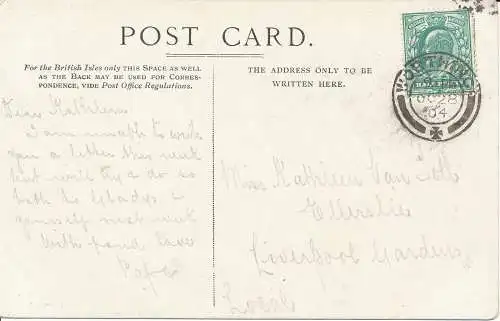 POST CARD.
For the British Isles only this Space as well
as the Back may be used for Corres-
pondence, vide Post Office Regulations.
THE ADDRESS ONLY TO BE
WRITTEN HERE.
WORTHING
28
04
Dear Kathleen
I am unable to write
you a letter this week
but will try & do so
both to Gladys &
yourself next week
With fond love
Papa
Miss Kathleen Van
Ellerslie
Liverpool Gardens
Local